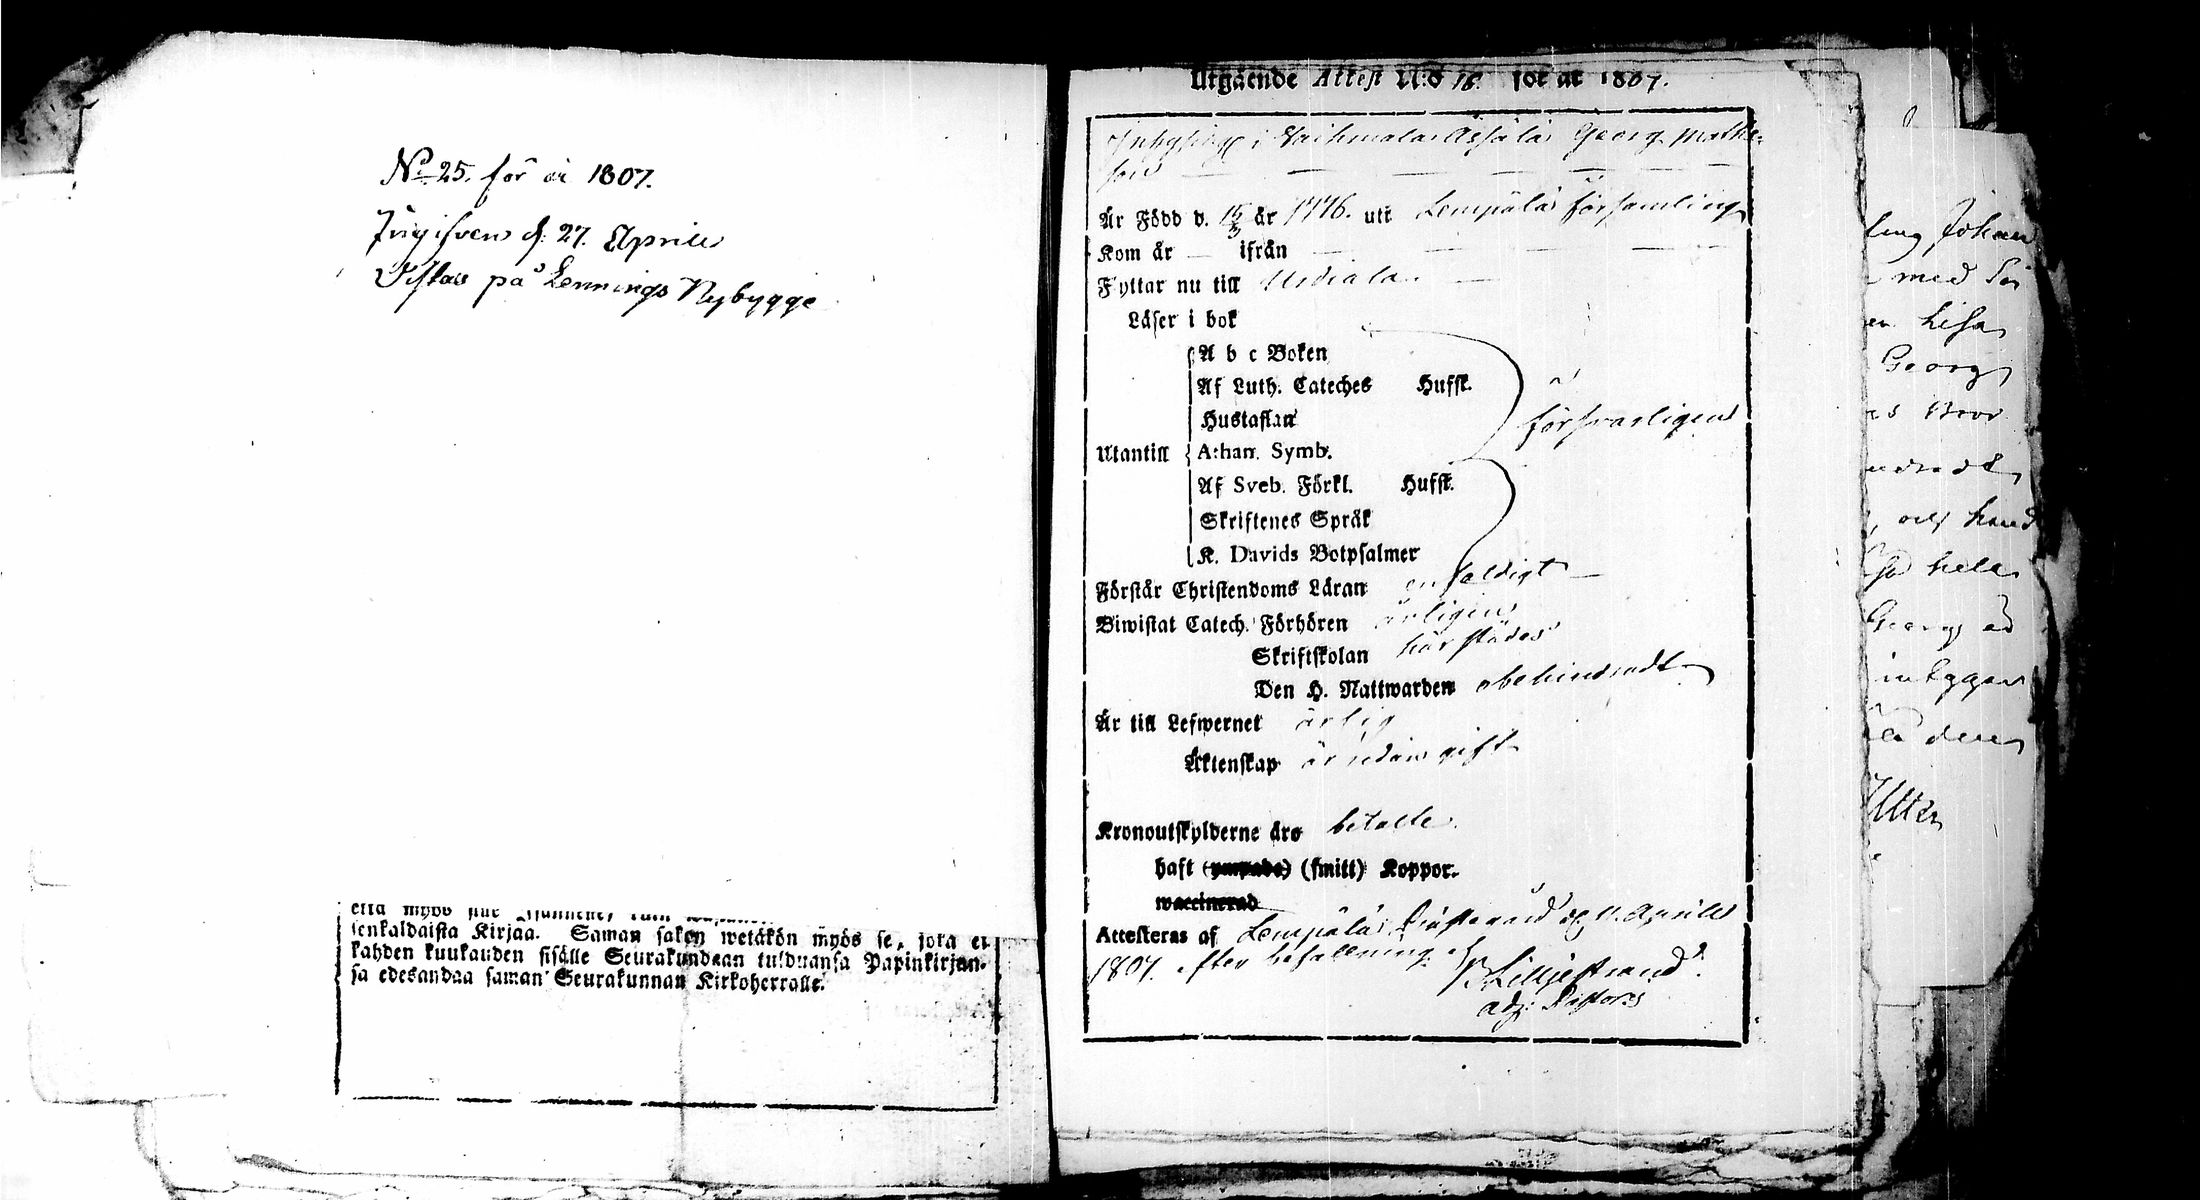 No 25. för år 1807.
Ingifven d: 27. Aprill
Vistas på Lennings Nybygge
senkaldaista Kirjaa. Saman saken wetäkön myös se, joka ei
kahden kuukauden sisälle Seurakundaan tulduansa Papinkirjan-
sa edesandaa saman Seurakunnan Kirkoherralle.
Utgående Attest N:o 18. för år 1807.
i Georg Matts-
son
Är Född d. 15/3 år 1776. uti Lempälä församling
Kom år — ifrån —
Flyttar nu till Urdiala.
Läser i bok
A b c Boken
Af Luth. Cateches Hufst.
Hustaflan
försvarligen
Utantill Athan. Symb.
Af Sveb. Förkl. Hufst.
Skriftenes Språk
K. Davids Botpsalmer
Förstår Christendoms Läran enfaldigt
Biwistat Catech. Förhören årligen
Skriftskolan härstädes
Den H. Nattwarden obehindradt
Är till Lefwernet ärlig
Äktenskap är redan gift
Kronoutskylderne äro betalte.
haft (ympade) (smitt) Koppor.
waccinerad
Attesteras af Lempälä Prästegård d. 11. Aprill
1807. efter befallning af
Lilljestrand.
adj: Pastoris
ling Johan
med
Lisa
Georg
och
hela
Georg
den